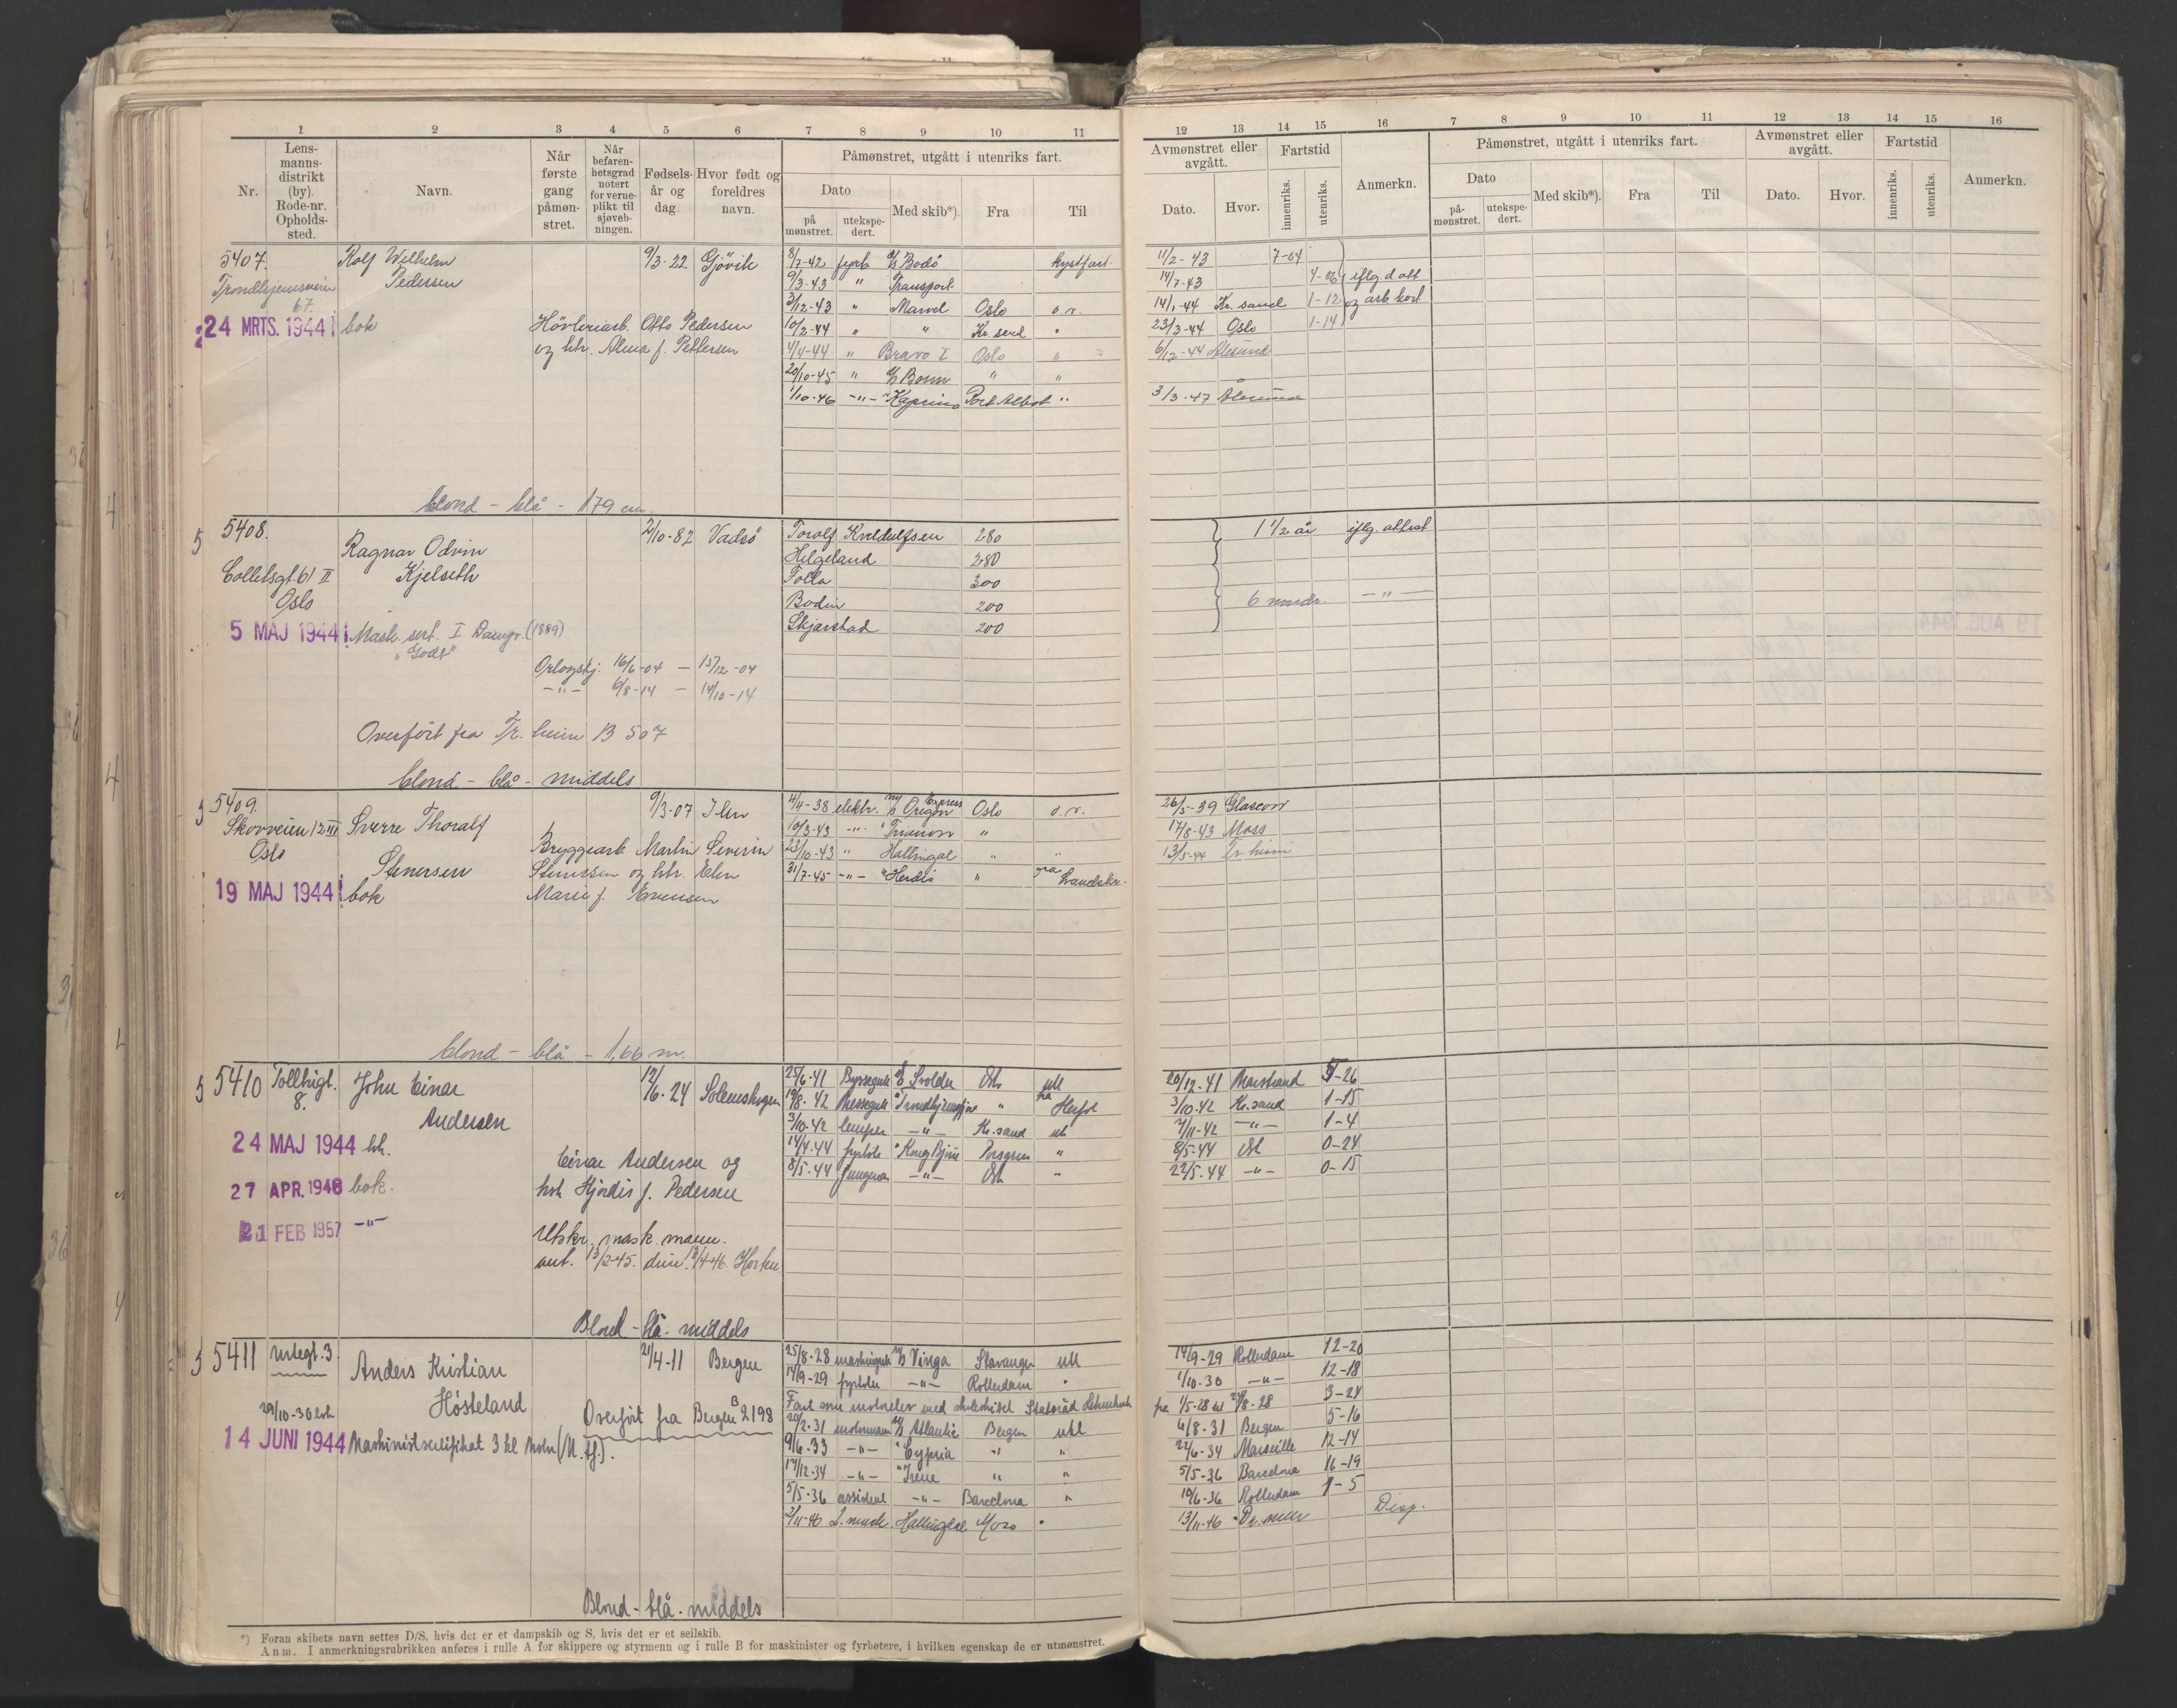 1 2 3 4 5 6 7 8 9 10 11
Nr.
Lens-
manns-
distrikt
(by).
Rode-nr.
Opholds-
sted.
Navn.
Når
første
gang
påmøn-
stret.
Når
befaren-
hetsgrad
notert
for verne-
plikt til
sjøveb-
ningen.
Fødsels-
år og
dag.
Hvor født og
foreldres
navn.
Påmønstret, utgått i utenriks fart.
Dato
på
mønstret.
utekspe-
dert.
Med skib*).
Fra
Til
12 13 14 15 16 7 8 9 10 11 12 13 14 15 16
Avmønstret eller
avgått.
Dato.
Hvor.
Fartstid
innenriks.
utenriks.
Anmerkn.
Påmønstret, utgått i utenriks fart.
Dato
på-
mønstret.
utekspe-
dert.
Med skib*).
Fra
Til
Avmønstret eller
avgått.
Dato.
Hvor.
Fartstid
innenriks.
utenriks.
Anmerkn.
5407.
Trondhjemsveien
67.
24 MRTS. 1944 bok
Rolf Wilhelm
Pedersen
9/3-22 Gjövik
Hövleriarb. Otto Pedersen
og htr. Alma f. Pettersen
8/7-42 fyrb D/S Bodö kystfart 11/2-43 7-04
9/3-43 " Transport 14/7-43 4-06 iflg. d att
3/12-43 " Marvel Oslo o.r. 14/1-44 Kr. sand 1-12 og arb. kort
10/2-44 " " Kr. sand " 23/3-44 Oslo 1-14
4/4-44 " Bravo I Oslo " 6/12-44 Ålesund
20/10-45 " D/S Bomm " "
1/10-46 -"- " Kaprino Port Albot " 3/3-47 Ålesund
blond - blå - 179 cm.
5 5408.
Colletsgt. 61 II
Oslo
5 MAJ 1944
Ragnar Odvin
Kjelseth
2/10-82 Vadsö
Mask. sert. I Damps. (1889)
"Godt"
Orlogstj. 16/6-04 - 15/12-04
-"- 6/8-14 - 14/10-14
Overfört fra Tr. heim B 507
Torolf Kveldulfsen 280 1 1/2 år iflg. attest
Helgeland 280
Folla 300
Bodin 200 6 mndr. -"-
Skjerstad 200
blond - blå - middels
5 5409.
Skovveien 12 III
Oslo
19 MAJ 1944 bok
Sverre Thoralf
Stenersen
9/3-07 Ilen
Bryggearb. Martin Severin
Stenersen og htr. Elen
Marie f. Evensen
4/4-38 elektr. M/S Oregon Express Oslo o.r. 26/5-39 Glascow
10/3-43 -"- " Trianon " 17/8-43 Moss
23/10-43 " Hallingdal " " 13/5-44 Tr. heim
31/7-45 -"- " Herdis " fra Landskr.
blond - blå - 1,66 m.
5 5410 Tollbugt.
8.
John Einar
Andersen
24 MAJ 1944 bh.
27 APR. 1948 bok.
21 FEB 1957 -"-
12/6-24 Solemskogen
Einar Andersen og
hst. Hjördis f. Pedersen
Utskr. mask. mann.
ant. 13/2-45. dim. 13/4-46. Horten
25/6-41 Byssegutt D/S Svolder Osl utl 20/12-41 Marstrand 5-26
19/8-42 Messegutt " Trondhjemsfjord " fra Herføl 3/10-42 Kr.sand 1-15
3/10-42 lemper -"- Kr.sand utl 7/11-42 -"- 1-4
14/4-44 fyrböter " Kong Bjørn Porsgrun " 8/5-44 Osl 0-24
8/5-44 jungman -"- Osl " 22/5-44 -"- 0-15
Blond - blå - middels
5 5411
29/10-30 bok
14 JUNI 1944
Anders Kristian
Hösteland
Maskinistsertifikat 3 kl Motor
21/4-11 Bergen
Overfört fra Bergen B 2198
25/8-28 maskingutt M/S Vinga Stavanger utl 14/9-29 Rotterdam 12-20
14/9-29 fyrböter -"- Rotterdam " 1/10-30 -"- 12-18
Fart som motorelev med skoleskibet Statsråd Lehmkuhl fra 1/5-28 til 24/8-28 3-24
20/2-31 motormann M/S Atlantic Bergen utl 6/8-31 Bergen 5-16
9/6-33 -"- " Cypria " " 22/6-34 Marseille 12-14
17/12-34 -"- " Irene " " 5/5-36 Barcelona 16-19
5/5-36 assistent -"- Barcelona " 10/6-36 Rotterdam 1-5
2/11-46 2. mask. Hallingdal Moss " 13/11-46 Disp.
Blond - blå - middels
*) Foran skibets navn settes D/S, hvis det er et dampskib og S, hvis det er et seilskib.
Anm. I anmerkningsrubrikken anføres i rulle A for skippere og styrmenn og i rulle B for maskinister og fyrbøtere, i hvilken egenskap de er utmønstret.